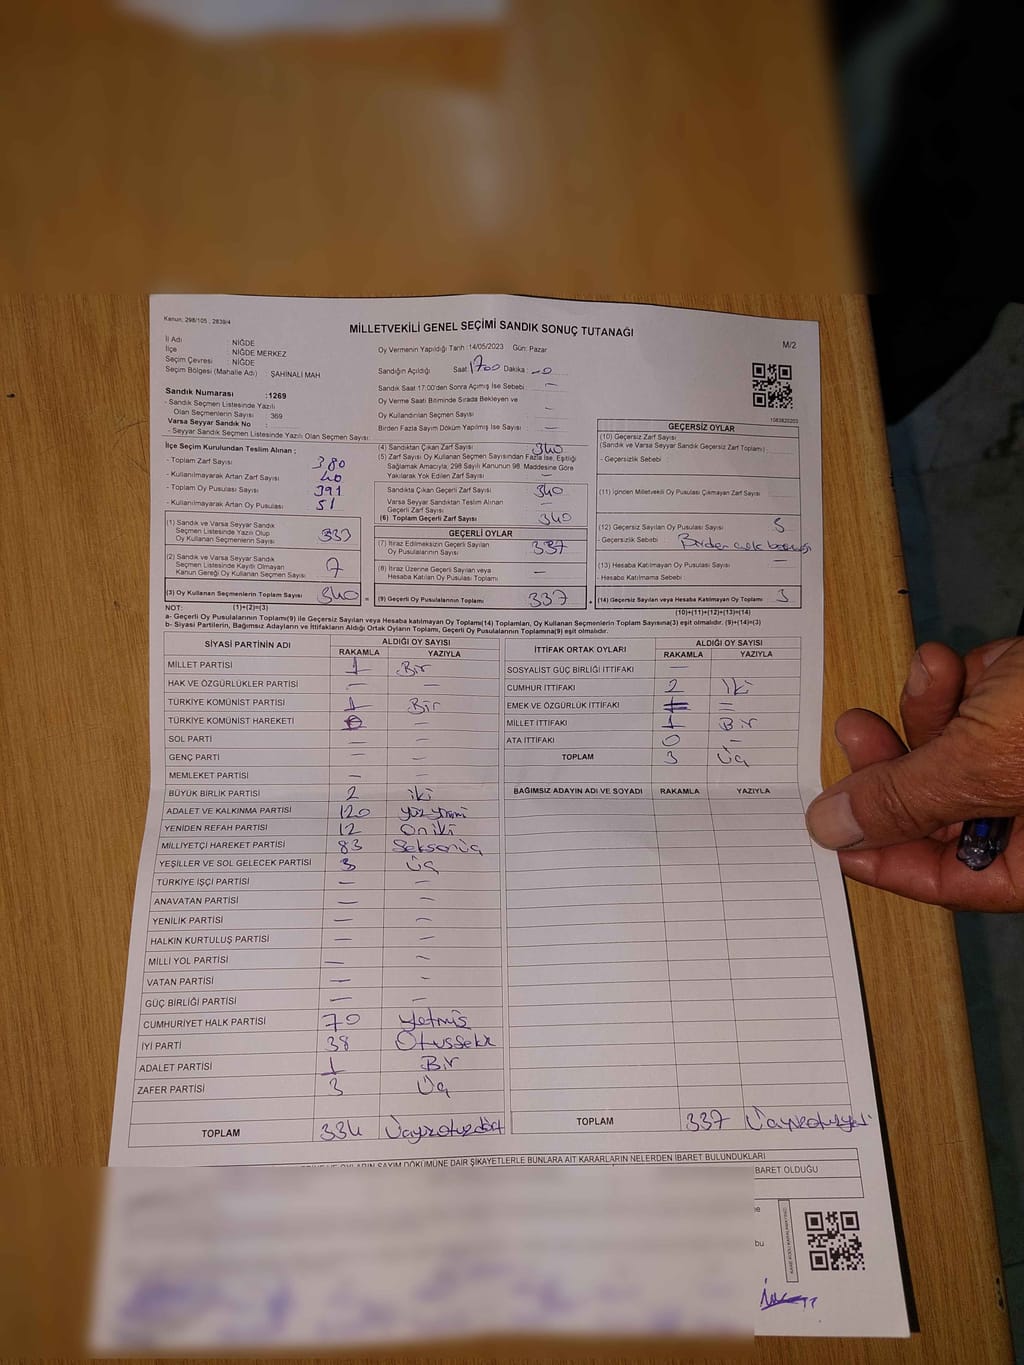 Kanun: 298/105 , 2839/4
MİLLETVEKİLİ GENEL SEÇİMİ SANDIK SONUÇ TUTANAĞI
M/2
İl Adı : NİĞDE
İlçe : NİĞDE MERKEZ
Seçim Çevresi : NİĞDE
Seçim Bölgesi (Mahalle Adı) : ŞAHİNALİ MAH
Sandık Numarası : 1269
- Sandık Seçmen Listesinde Yazılı
Olan Seçmenlerin Sayısı : 369
Varsa Seyyar Sandık No :
- Seyyar Sandık Seçmen Listesinde Yazılı Olan Seçmen Sayısı:
Oy Vermenin Yapıldığı Tarih :14/05/2023 Gün: Pazar
Sandığın Açıldığı Saat : 1700 Dakika :
Sandık Saat 17:00'den Sonra Açımış İse Sebebi : —
Oy Verme Saati Bitiminde Sırada Bekleyen ve
Oy Kullandırılan Seçmen Sayısı : —
Birden Fazla Sayım Döküm Yapılmış İse Sayısı : —
1083820203
İlçe Seçim Kurulundan Teslim Alınan ;
- Toplam Zarf Sayısı : 380
- Kullanılmayarak Artan Zarf Sayısı : 40
- Toplam Oy Pusulası Sayısı : 391
- Kullanılmayarak Artan Oy Pusulası : 51
(1) Sandık ve Varsa Seyyar Sandık
Seçmen Listesinde Yazılı Olup
Oy Kullanan Seçmenlerin Sayısı : 333
(2) Sandık ve Varsa Seyyar Sandık
Seçmen Listesinde Kaydı Olmayan
Kanun Gereği Oy Kullanan Seçmen Sayısı : 7
(3) Oy Kullanan Seçmenlerin Toplam Sayısı : 340
(4) Sandıktan Çıkan Zarf Sayısı : 340
(5) Zarf Sayısı Oy Kullanan Seçmen Sayısından Fazla İse, Eşitliği
Sağlamak Amacıyla; 298 Sayılı Kanunun 98. Maddesine Göre
Yakılarak Yok Edilen Zarf Sayısı : —
Sandıkta Çıkan Geçerli Zarf Sayısı : 340
Varsa Seyyar Sandıktan Teslim Alınan
Geçerli Zarf Sayısı : —
(6) Toplam Geçerli Zarf Sayısı : 340
GEÇERLİ OYLAR
(7) İtiraz Edilmeksizin Geçerli Sayılan
Oy Pusulalarının Sayısı : 337
(8) İtiraz Üzerine Geçerli Sayılan veya
Hesaba Katılan Oy Pusulası Toplamı : —
(9) Geçerli Oy Pusulalarının Toplamı : 337
GEÇERSİZ OYLAR
(10) Geçersiz Zarf Sayısı
(Sandık ve Varsa Seyyar Sandık Geçersiz Zarf Toplamı) :
- Geçersizlik Sebebi :
(11) İçinden Milletvekili Oy Pusulası Çıkmayan Zarf Sayısı :
(12) Geçersiz Sayılan Oy Pusulası Sayısı :
- Geçersizlik Sebebi : Birden çok
(13) Hesaba Katılmayan Oy Pusulası Sayısı : —
- Hesaba Katılmama Sebebi :
(14) Geçersiz Sayılan veya Hesaba Katılmayan Oy Toplamı : 3
NOT: (1)+(2)=(3) (10)+(11)+(12)+(13)=(14)
a- Geçerli Oy Pusulalarının Toplamı(9) ile Geçersiz Sayılan veya Hesaba Katılmayan Oy Toplamı(14) Toplamları, Oy Kullanan Seçmenlerin Toplam Sayısına(3) eşit olmalıdır. (9)+(14)=(3)
b- Siyasi Partilerin, Bağımsız Adayların ve İttifakların Aldığı Ortak Oyların Toplamı, Geçerli Oy Pusulalarının Toplamına(9) eşit olmalıdır.
SİYASİ PARTİNİN ADI ALDIĞI OY SAYISI
RAKAMLA YAZIYLA
MİLLET PARTİSİ 1 Bir
HAK VE ÖZGÜRLÜKLER PARTİSİ — —
TÜRKİYE KOMÜNİST PARTİSİ 1 Bir
TÜRKİYE KOMÜNİST HAREKETİ —
SOL PARTİ — —
GENÇ PARTİ — —
MEMLEKET PARTİSİ — —
BÜYÜK BİRLİK PARTİSİ 2 iki
ADALET VE KALKINMA PARTİSİ 120 yüzyirmi
YENİDEN REFAH PARTİSİ 12 Oniki
MİLLİYETÇİ HAREKET PARTİSİ 83 Seksenüç
YEŞİLLER VE SOL GELECEK PARTİSİ 3 Üç
TÜRKİYE İŞÇİ PARTİSİ — —
ANAVATAN PARTİSİ — —
YENİLİK PARTİSİ — —
HALKIN KURTULUŞ PARTİSİ — —
MİLLİ YOL PARTİSİ — —
VATAN PARTİSİ — —
GÜÇ BİRLİĞİ PARTİSİ — —
CUMHURİYET HALK PARTİSİ 70 yetmiş
İYİ PARTİ 38 Otuzseki
ADALET PARTİSİ 1 Bir
ZAFER PARTİSİ 3 Üç
TOPLAM 334 Üçyüzotuzdört
İTTİFAK ORTAK OYLARI ALDIĞI OY SAYISI
RAKAMLA YAZIYLA
SOSYALİST GÜÇ BİRLİĞİ İTTİFAKI —
CUMHUR İTTİFAKI 2 İki
EMEK VE ÖZGÜRLÜK İTTİFAKI
MİLLET İTTİFAKI 1 Bir
ATA İTTİFAKI 0 —
TOPLAM 3 Üç
BAĞIMSIZ ADAYIN ADI VE SOYADI RAKAMLA YAZIYLA
TOPLAM 337 Üçyüzotuzyedi
OYLARIN SAYIM DÖKÜMÜNE DAİR ŞİKAYETLERLE BUNLARA AİT KARARLARIN NELERDEN İBARET BULUNDUKLARI
İBARET OLDUĞU